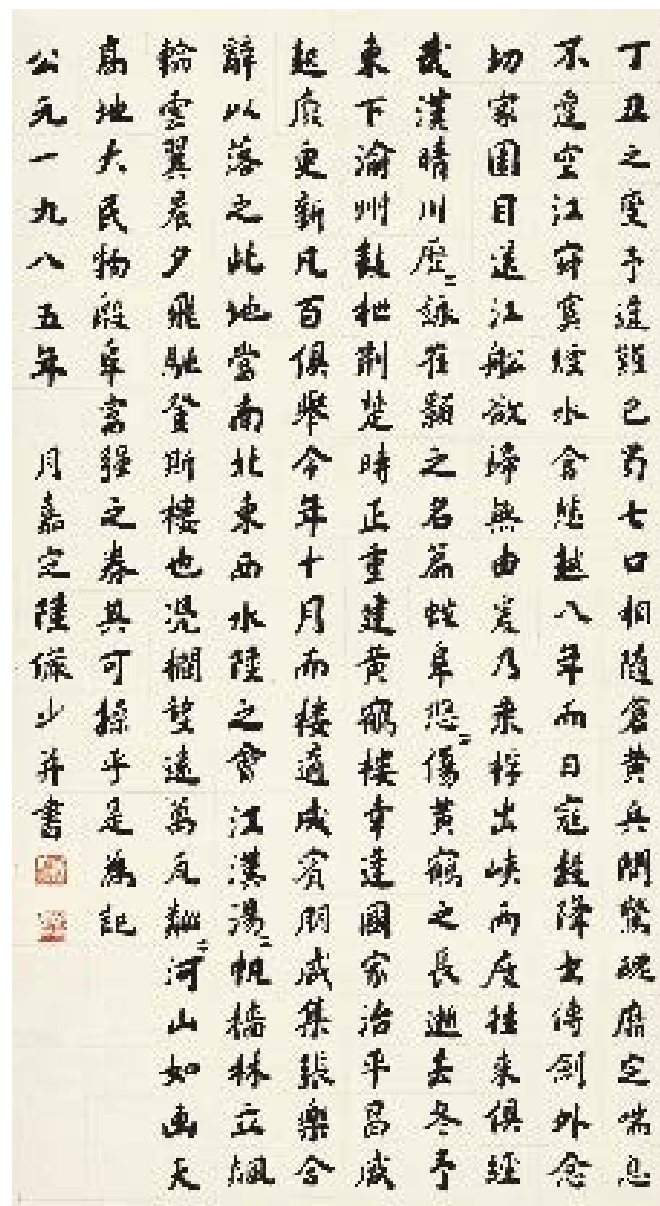 丁丑之變予違難巴蜀七口相隨倉黄兵間驚魂靡定喘息
不遑空江寂寞煙水含愁越八年而日寇投降書傳劍外念
切家園目送江船欲歸無由爰乃乘桴出峽而度往來俱經
武漢晴川歷=詠崔顥之名篇蛇阜悠=傷黄鶴之長逝去冬予
東下渝州鼓枻荆楚時正重建黄鶴樓幸逢國家治平昌盛
起廢更新凡百俱舉今年十月而樓適成賓朋咸集張樂合
辭以落之此地當南北東西水陸之會江漢湯=帆檣林立飆
輪雲翼晨夕飛馳登斯樓也凭欄望遠萬瓦鱗=河山如画天
高地大民物殷阜富强之券其可操乎是為記
公元一九八五年 月嘉定陸儼少并書